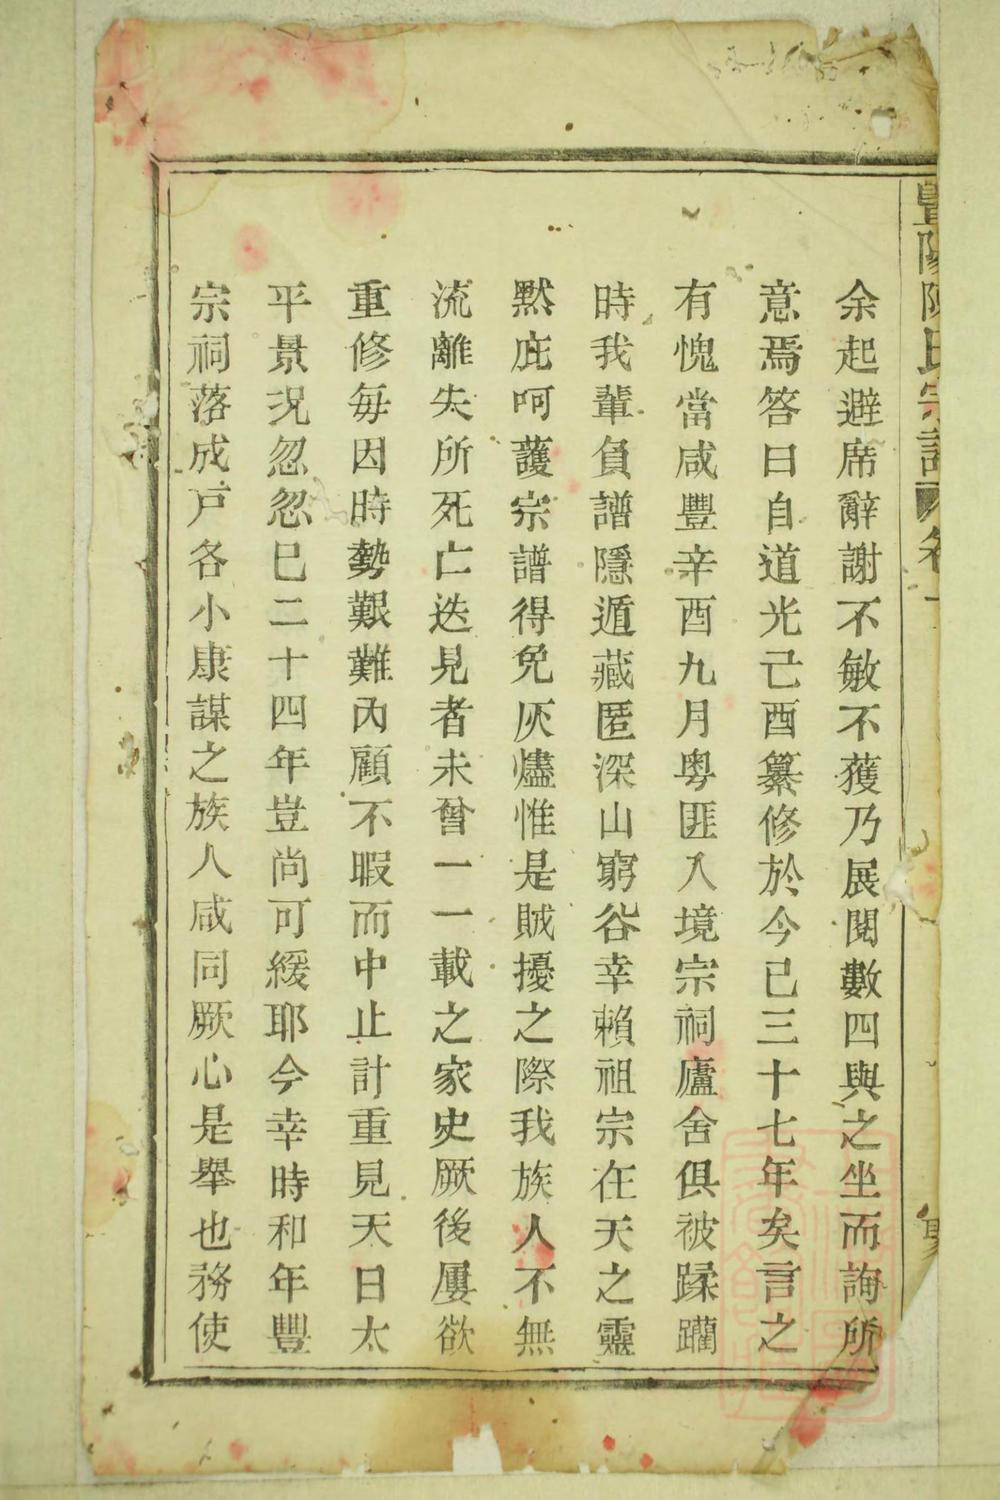 暨陽陳氏宗譜 卷一
余起避席辭謝不敏不獲乃展閱數四與之坐而詢所
意焉答曰自道光己酉纂修於今已三十七年矣言之
有愧當咸豐辛酉九月粵匪入境宗祠廬舍俱被蹂躪
時我輩負譜隱遁藏匿深山窮谷幸賴祖宗在天之靈
默庇呵護宗譜得免灰燼惟是賊擾之際我族人不無
流離失所死亡迭見者未曾一一載之家史厥後屢欲
重修每因時勢艱難內顧不暇而中止計重見天日太
平景況忽忽巳二十四年豈尚可緩耶今幸時和年豐
宗祠落成戸各小康謀之族人咸同厥心是舉也務使